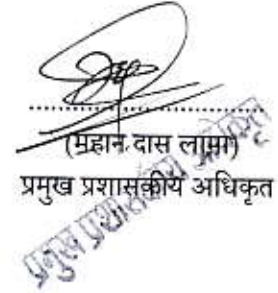 ....................................
(महान दास लामा)
प्रमुख प्रशासकीय अधिकृत
प्रमुख प्रशासकीय अधिकृत